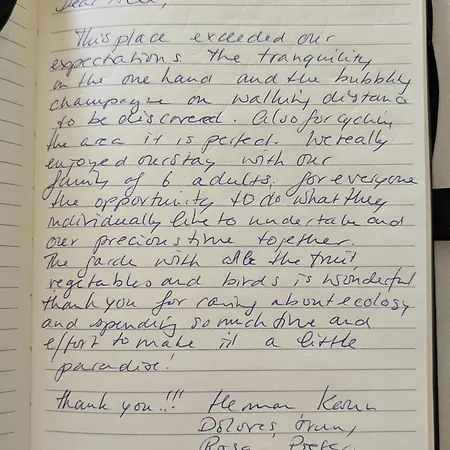 Dear
This place exceeded our
expectations. The tranquility
on the one hand and the bubbly
champagne on walking distance
to be discovered. Also for cycling
the area it is perfect. We really
enjoyed our stay with our
family of 6 adults, for everyone
the opportunity to do what they
individually like to undertake and
our precious time together.
The garde with all the fruit,
vegetables and birds is wonderful
thank you for caring about ecology
and spending so much time and
effort to make it a little
paradise!
thank you!!! Herman, Karin
Dolores,
Rosa, Pieter